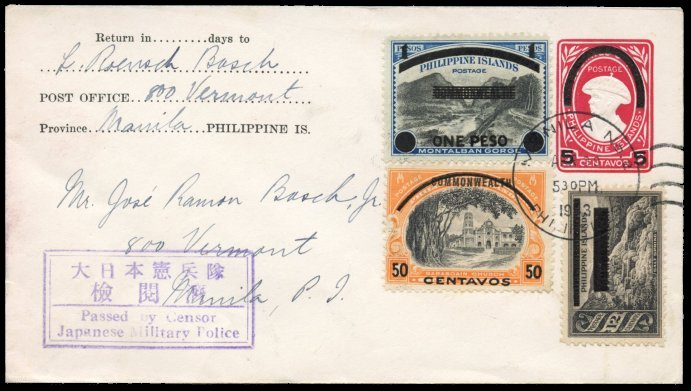 Return in.........days to
L. Roensch Bosch
POST OFFICE 800 Vermont
Province Manila PHILIPPINE IS.
Mr. José Ramon Bosch, Jr.
800 Vermont
Manila, P. I.
大日本憲兵隊
檢閱濟
Passed by Censor
Japanese Military Police
1 1
PESOS PESOS
PHILIPPINE ISLANDS
POSTAGE
ONE PESO
MONTALBAN GORGE
COMMONWEALTH
50 50
BARASOAIN CHURCH
CENTAVOS
POSTAGE
PHILIPPINE ISLANDS
5 5
CENTAVOS
MANILA
530PM
PHILIPPINE ISLANDS
12